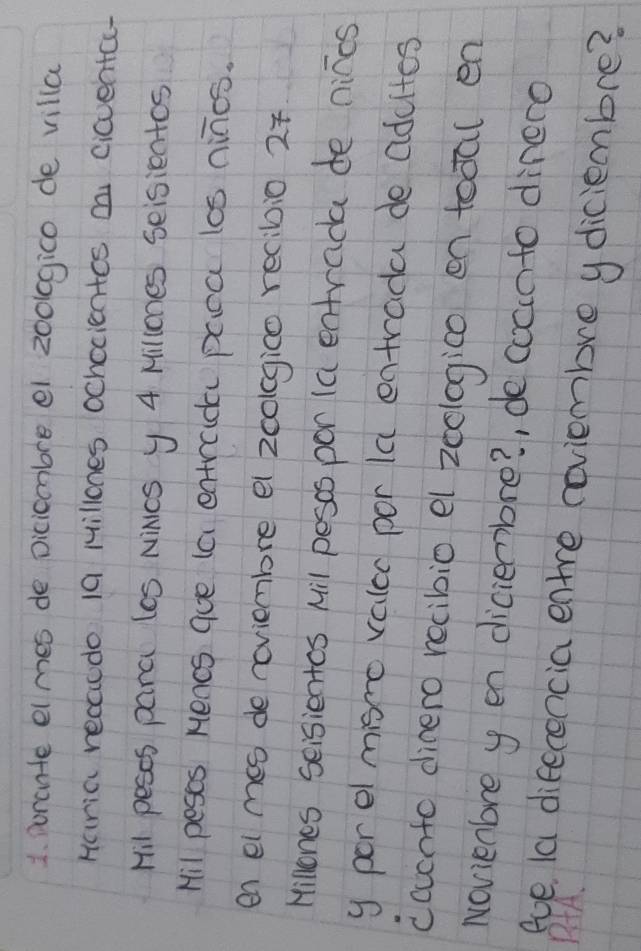 1. Durante el mes de Diciembre el zoologico de villa
Maria recaudo 19 Millones ochocientos cicuenta-
Mil pesos para los NiÑos y 4 Millones seisientos
Mil pesos Menos que la entrada para los niños.
en el mes de noviembre el zoologico recibio 27
Millones seisientos Mil pesos por la entrada de niños
y por el mismo valor por la entrada de adultos
¿cuanto dinero recibio el zoologico en total en
Novienbre y en diciembre?, de cuanto dinero
fue la diferencia entre noviembre y diciembre?
R+A.